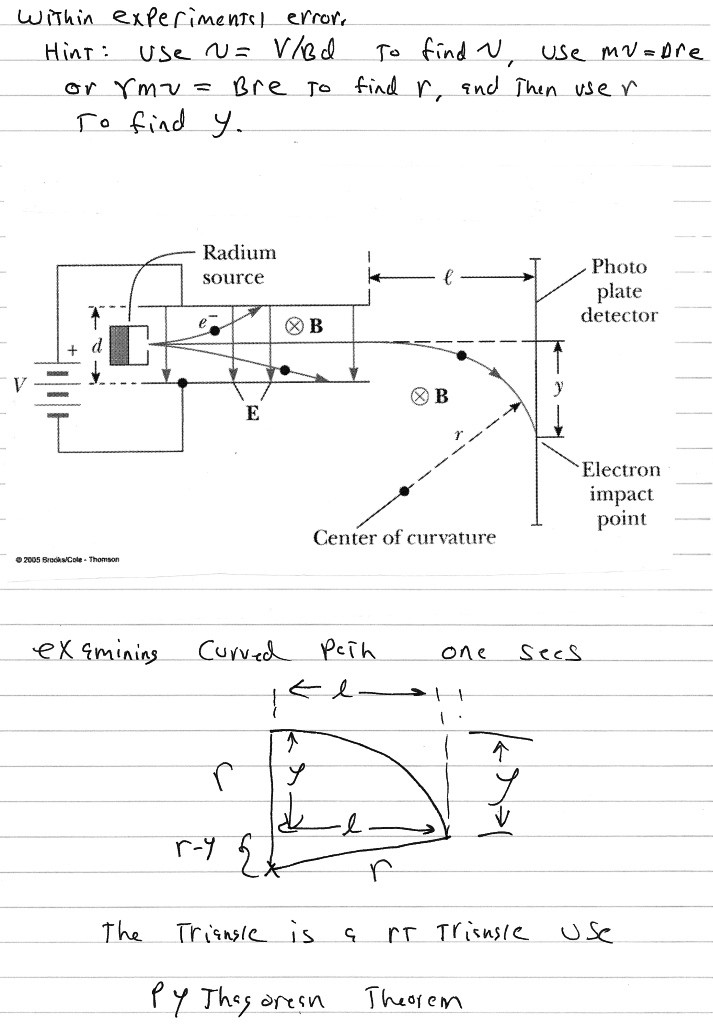 within experimental error.
Hint: Use v = V/Bd To find v, use mv=Bre
or γmv = Bre To find r, and Then use r
To find y.
Radium
source
ℓ
Photo
plate
detector
e−
⊗ B
+
d
V
E
⊗ B
y
r
Electron
impact
point
Center of curvature
© 2005 Brooks/Cole - Thomson
examining Curved Path one sees
l
r
y
y
l
r-y
r
The Triangle is a rT Triangle Use
PyThagorean Theorem